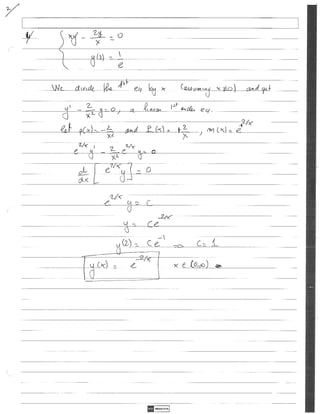 2/
1/ { xy' - 2y/x = 0
y(2) = 1/e
We divide the 1st eq by x (assuming x≠0) and get
y' - 2/x² y = 0, a linear 1st order eq.
Let p(x) = -2/x² and P(x) = +2/x, m(x) = e^{2/x}
e^{2/x} y' - 2/x² e^{2/x} y = 0
d/dx [ e^{2/x} y ] = 0
e^{2/x} y = C
y = C e^{-2/x}
y(2) = C e^{-1} so C = 1
y(x) = e^{-2/x} x ∈ (0,∞)